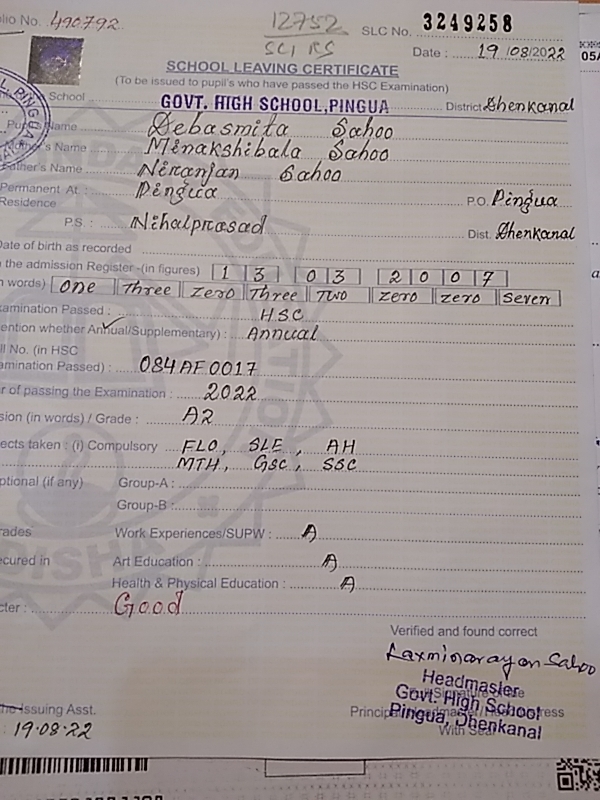 olio No. 490792
12752
SCI RS
SLC No. 3249258
05A
Date : 19/08/2022
SCHOOL LEAVING CERTIFICATE
(To be issued to pupil's who have passed the HSC Examination)
School GOVT. HIGH SCHOOL, PINGUA District Dhenkanal
PINGUA
Pupil's Name Debasmita Sahoo
Mother's Name Minakshibala Sahoo
Father's Name Niranjan Sahoo
Permanent At. : Pingua P.O. Pingua
Residence
P.S. : Nihalprasad Dist. Dhenkanal
Date of birth as recorded
the admission Register -(in figures) 1 3 03 2007
words) One Three Zero Three Two zero zero Seven
xamination Passed : HSC
ention whether Annual/Supplementary) : Annual
ll No. (in HSC
amination Passed) : 084AF0017
r of passing the Examination : 2022
sion (in words) / Grade : A2
ects taken : (i) Compulsory FLO, SLE, AH
MTH, GSC, SSC
ptional (if any) Group-A :
Group-B :
rades Work Experiences/SUPW : A
ecured in Art Education : A
Health & Physical Education : A
cter : Good
Verified and found correct
Laxminarayan Sahoo
Headmaster
Govt. High School
Pingua, Dhenkanal
With Seal
the Issuing Asst.
: 19.08.22